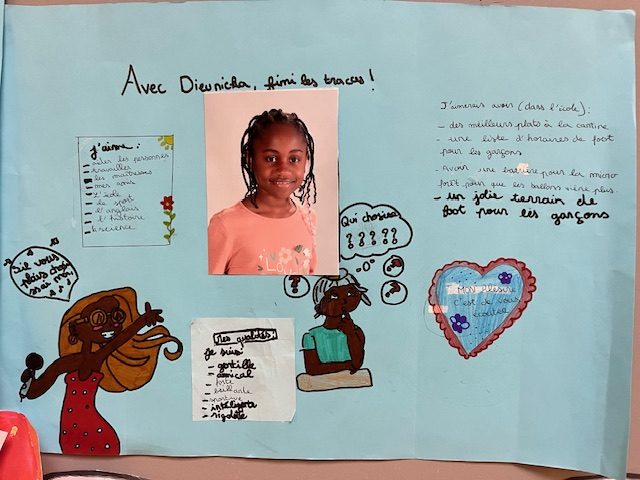 Avec Dieunicka, fini les tracas !
j'aime :
- aider les personnes
- travailler
- ma maîtresse
- mes amis
- l'école
- le sport
- l'anglais
- l'histoire
- la science
J'aimerais avoir (dans l'école) :
- des meilleurs plats à la cantine
- une liste d'horaires de foot
pour les garçons
- Avoir une barrière pour la micro
forêt pour que les ballons
- un jolie terrain de
foot pour les garçons
Qui choisir
? ? ? ? ?
S'il vous
plais
moi
Mes qualités :
Je suis
- gentille
- amical
- forte
- brillante
- sportive
- inteligente
- rigolote
Mon plaisir
c'est de vous
écouter